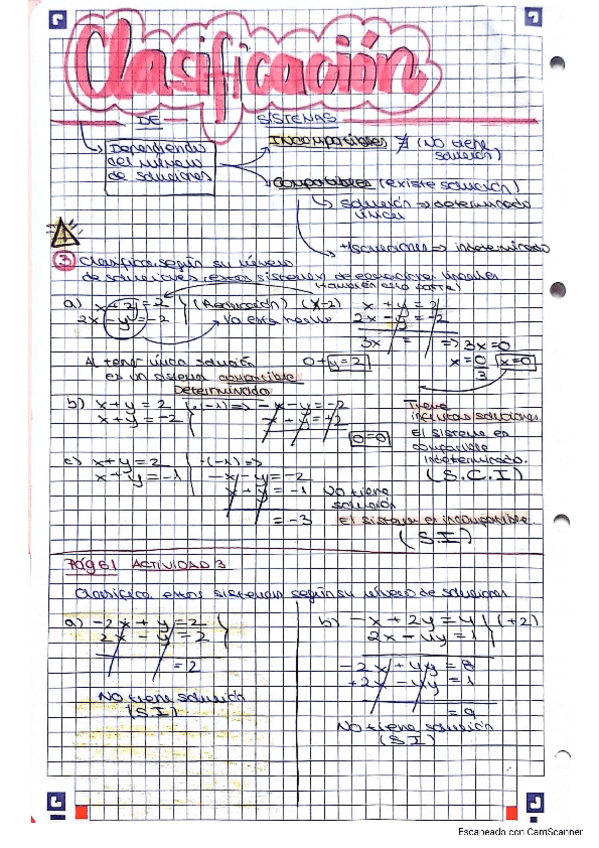 Clasificación
DE SISTEMAS
Dependiendo del número de soluciones
Incompatibles ∄ (No tiene solución)
Compatibles (existe solución)
↳ solución => determinado
única
+ soluciones => indeterminado
③ Clasifica, según su número
de soluciones, estos sistemas de ecuaciones lineales
a) x + y = 2 } (Reducción) (x-2) x + y = 2
2x - y = -2 Ya está 2x - y = -2
3x = => 3x = 0
Al tener única solución 0 + y = 2 x = 0/3 x = 0
es un sistema compatible
Determinado
b) x + y = 2 } ·(-1) => -x - y = -2 Tiene
x + y = -2 x + y = +2 infinitas soluciones.
0 = 0 El sistema es
compatible
indeterminado.
(S.C.I)
c) x + y = 2 } ·(-1) =>
x + y = -1 -x - y = -2 No tiene
x + y = -1 solución
= -3 El sistema es incompatible
(S.I)
Pág 61 ACTIVIDAD 3
Clasifica estos sistemas según su número de soluciones
a) -2x + y = 2 }
2x - y = 2
= 2
No tiene solución
(S.I)
b) -x + 2y = 4 } (+2)
2x - 4y = 1
-2x + 4y = 8
+2x - 4y = 1
= 9
No tiene solución
(S.I)
Escaneado con CamScanner